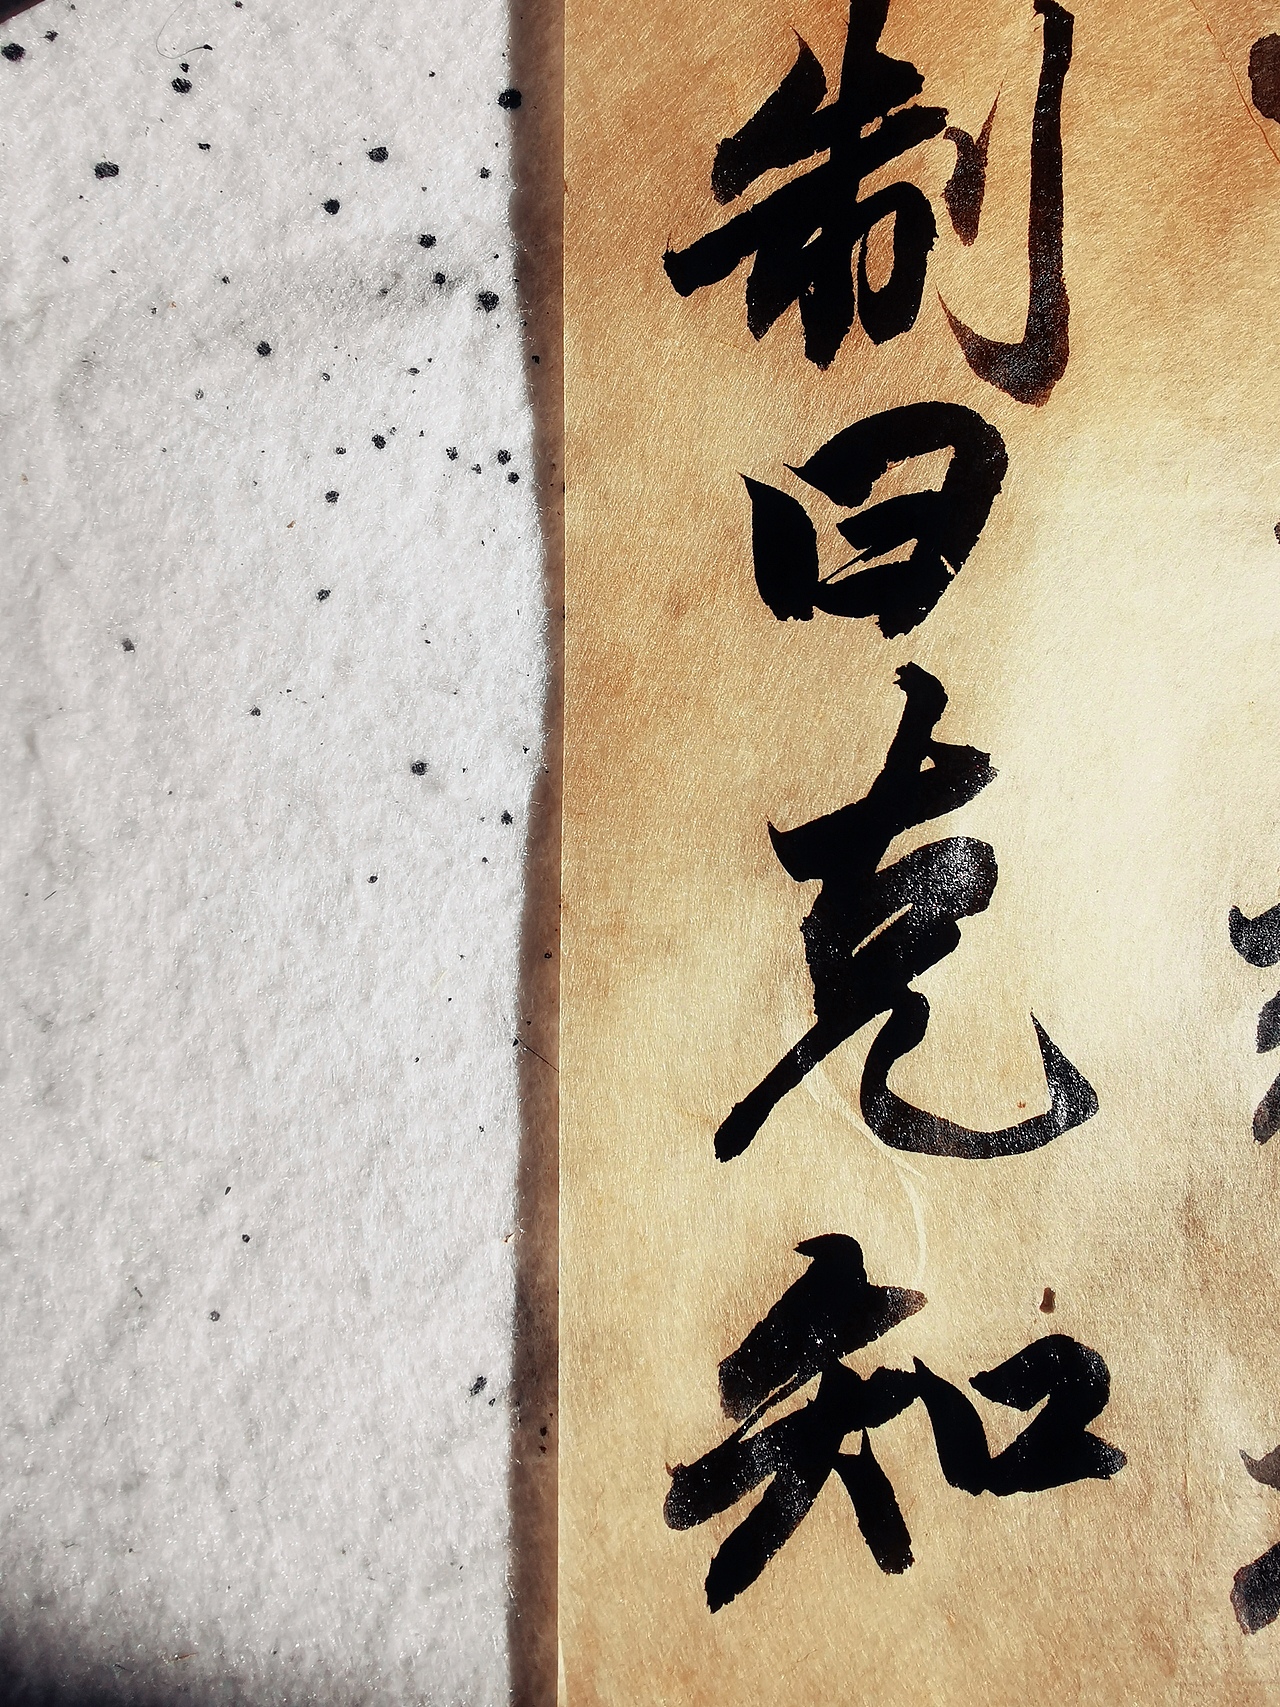 制曰克知